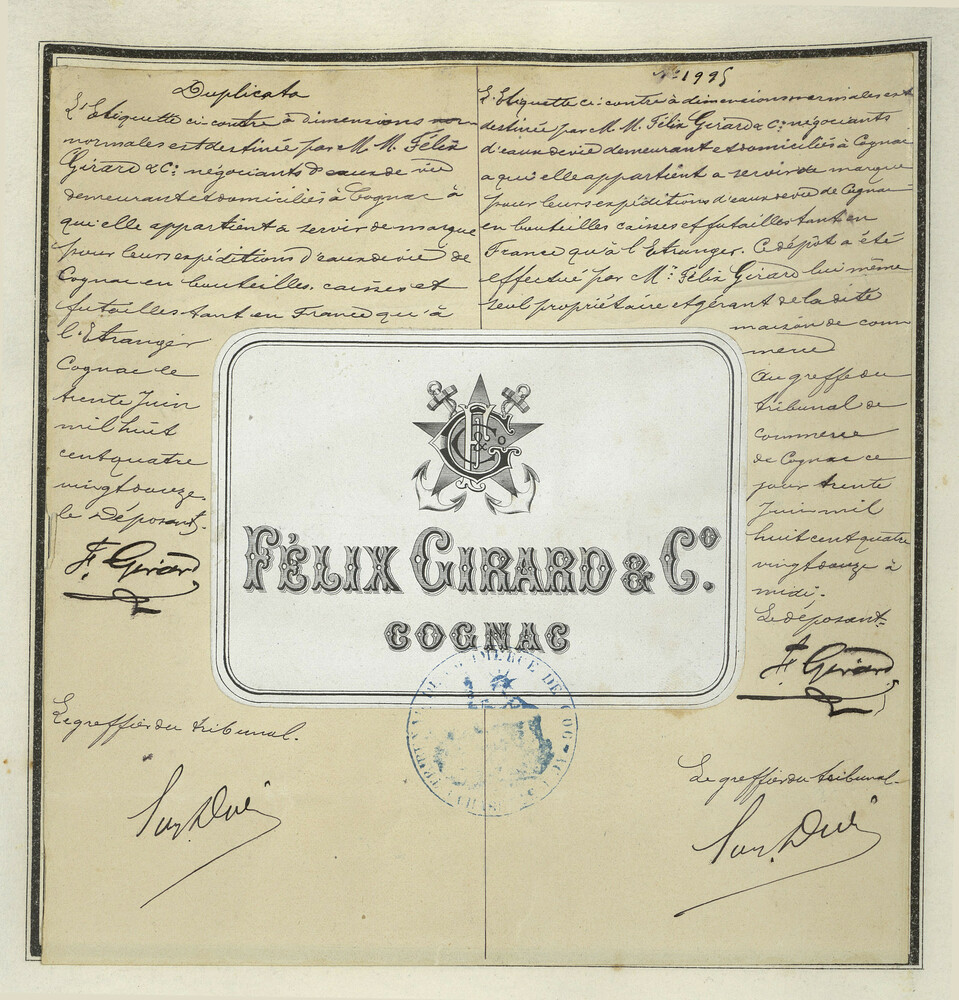 Duplicata
L'Etiquette ci contre à dimensions nor-
normales est destinée par M M. Félix
Girard & Cie négociants d'eaux de vie
demeurant et domiciliés à Cognac à
qui elle appartient à servir de marque
pour leurs expéditions d'eaux de vie de
Cognac en bouteilles, caisses et
futailles tant en France qu'à
l'Etranger
Cognac le
trente Juin
mil huit
cent quatre
vingt douze
le Déposant.
F. Girard
Le greffier du tribunal.
No 1995
L'Etiquette ci contre à dimensions normales est
destinée par M. M. Félix Girard & Cie négociants
d'eaux de vie demeurant et domiciliés à Cognac
a qui elle appartient a servir de marque
pour leurs expéditions d'eaux de vie de Cognac
en bouteilles caisses et futailles tant en
France qu'à l'Etranger. Ce dépôt a été
effectué par Mr Félix Girard lui même
seul propriétaire et gérant de la dite
maison de com
merce
Au greffe du
tribunal de
commerce
de Cognac ce
jour trente
Juin mil
huit cent quatre
vingt douze à
midi.
Le déposant.
F. Girard
Le greffier du tribunal
FG & Co
FÉLIX GIRARD & Co.
COGNAC
TRIBUNAL DE COMMERCE DE COGNAC